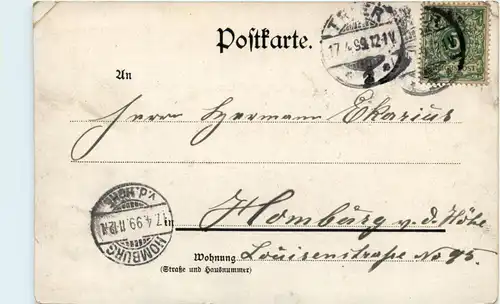 Postkarte.
TRIER
17.4.99.12-1V.
5
POST
An
Herrn Hermann Ekarius
in Homburg v. d. Höhe
Wohnung Louisenstraße No 95.
(Straße und Hausnummer)
HOMBURG
17.4.99.11-12N.
v.d. HÖHE